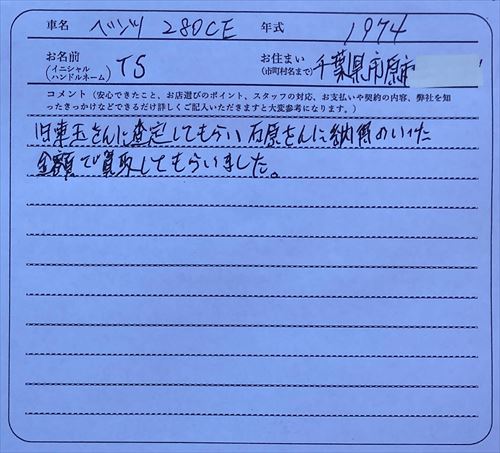 車名 ベンツ 280CE 年式 1974
お名前 (イニシャル ハンドルネーム) TS お住まい (市町村名まで) 千葉県市原市
コメント（安心できたこと、お店選びのポイント、スタッフの対応、お支払いや契約の内容、弊社を知
ったきっかけなどできるだけ詳しくご記入いただきますと大変参考になります。）
旧車王さんに査定してもらい石原さんに納得のいった
金額で買取してもらいました。